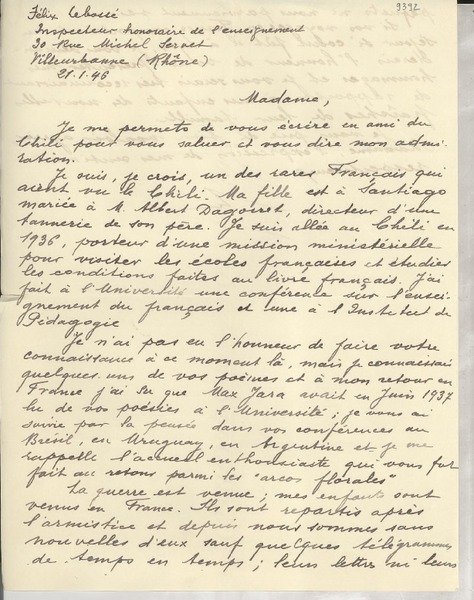 9392
Félix Lebossé
Inspecteur honoraire de l'enseignement
30 Rue Michel Servet
Villeurbanne (Rhône)
21.1.46
Madame,
Je me permets de vous écrire en ami du
Chili pour vous saluer et vous dire mon admi-
ration.
Je suis, je crois, un des rares Français qui
aient vu le Chili. Ma fille est à Santiago
mariée à M. Albert Dagorret, directeur d'une
tannerie de son père. Je suis allé au Chili en
1936, porteur d'une mission ministérielle
pour visiter les écoles françaises et étudier
les conditions faites au livre français. J'ai
fait à l'Université une conférence sur l'ensei-
gnement du français et une à l'Institut de
Pédagogie
Je n'ai pas eu l'honneur de faire votre
connaissance à ce moment là, mais je connaissais
quelques uns de vos poèmes et à mon retour en
France j'ai su que Max Jara avait en Juin 1937
lu de vos poésies à l'Université ; je vous ai
suivie par la pensée dans vos conférences au
Brésil, en Uruguay, en Argentine et je me
rappelle l'accueil enthousiaste qui vous fut
fait au retour parmi les "arcos florales"
La guerre est venue ; mes enfants sont
venus en France. Ils sont repartis après
l'armistice et depuis nous sommes sans
nouvelles d'eux sauf quelques télégrammes
de temps en temps ; leurs lettres ni leurs